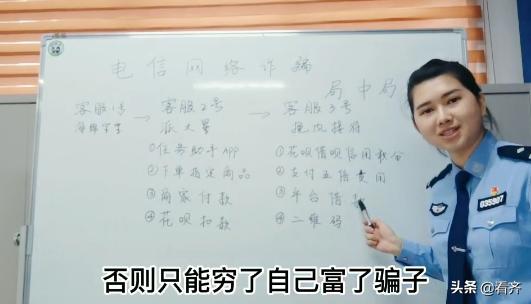 电信网络诈骗
局中局
客服1号 → 客服2号 → 客服3号
海绵宝宝 派大星
①任务助手APP ①花呗借呗信用积分
②下单指定商品 ②支付五倍费用
③商家付款 ③平台借
④花呗扣款 ④二维码
035907
否则只能穷了自己富了骗子
头条@看齐